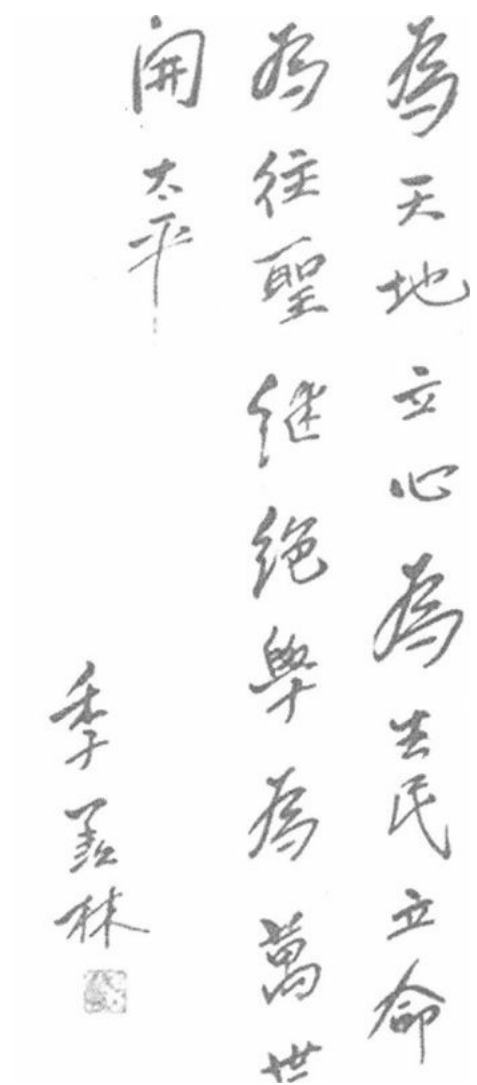 為天地立心為生民立命
為往聖继絶學為萬世
開太平
季羡林